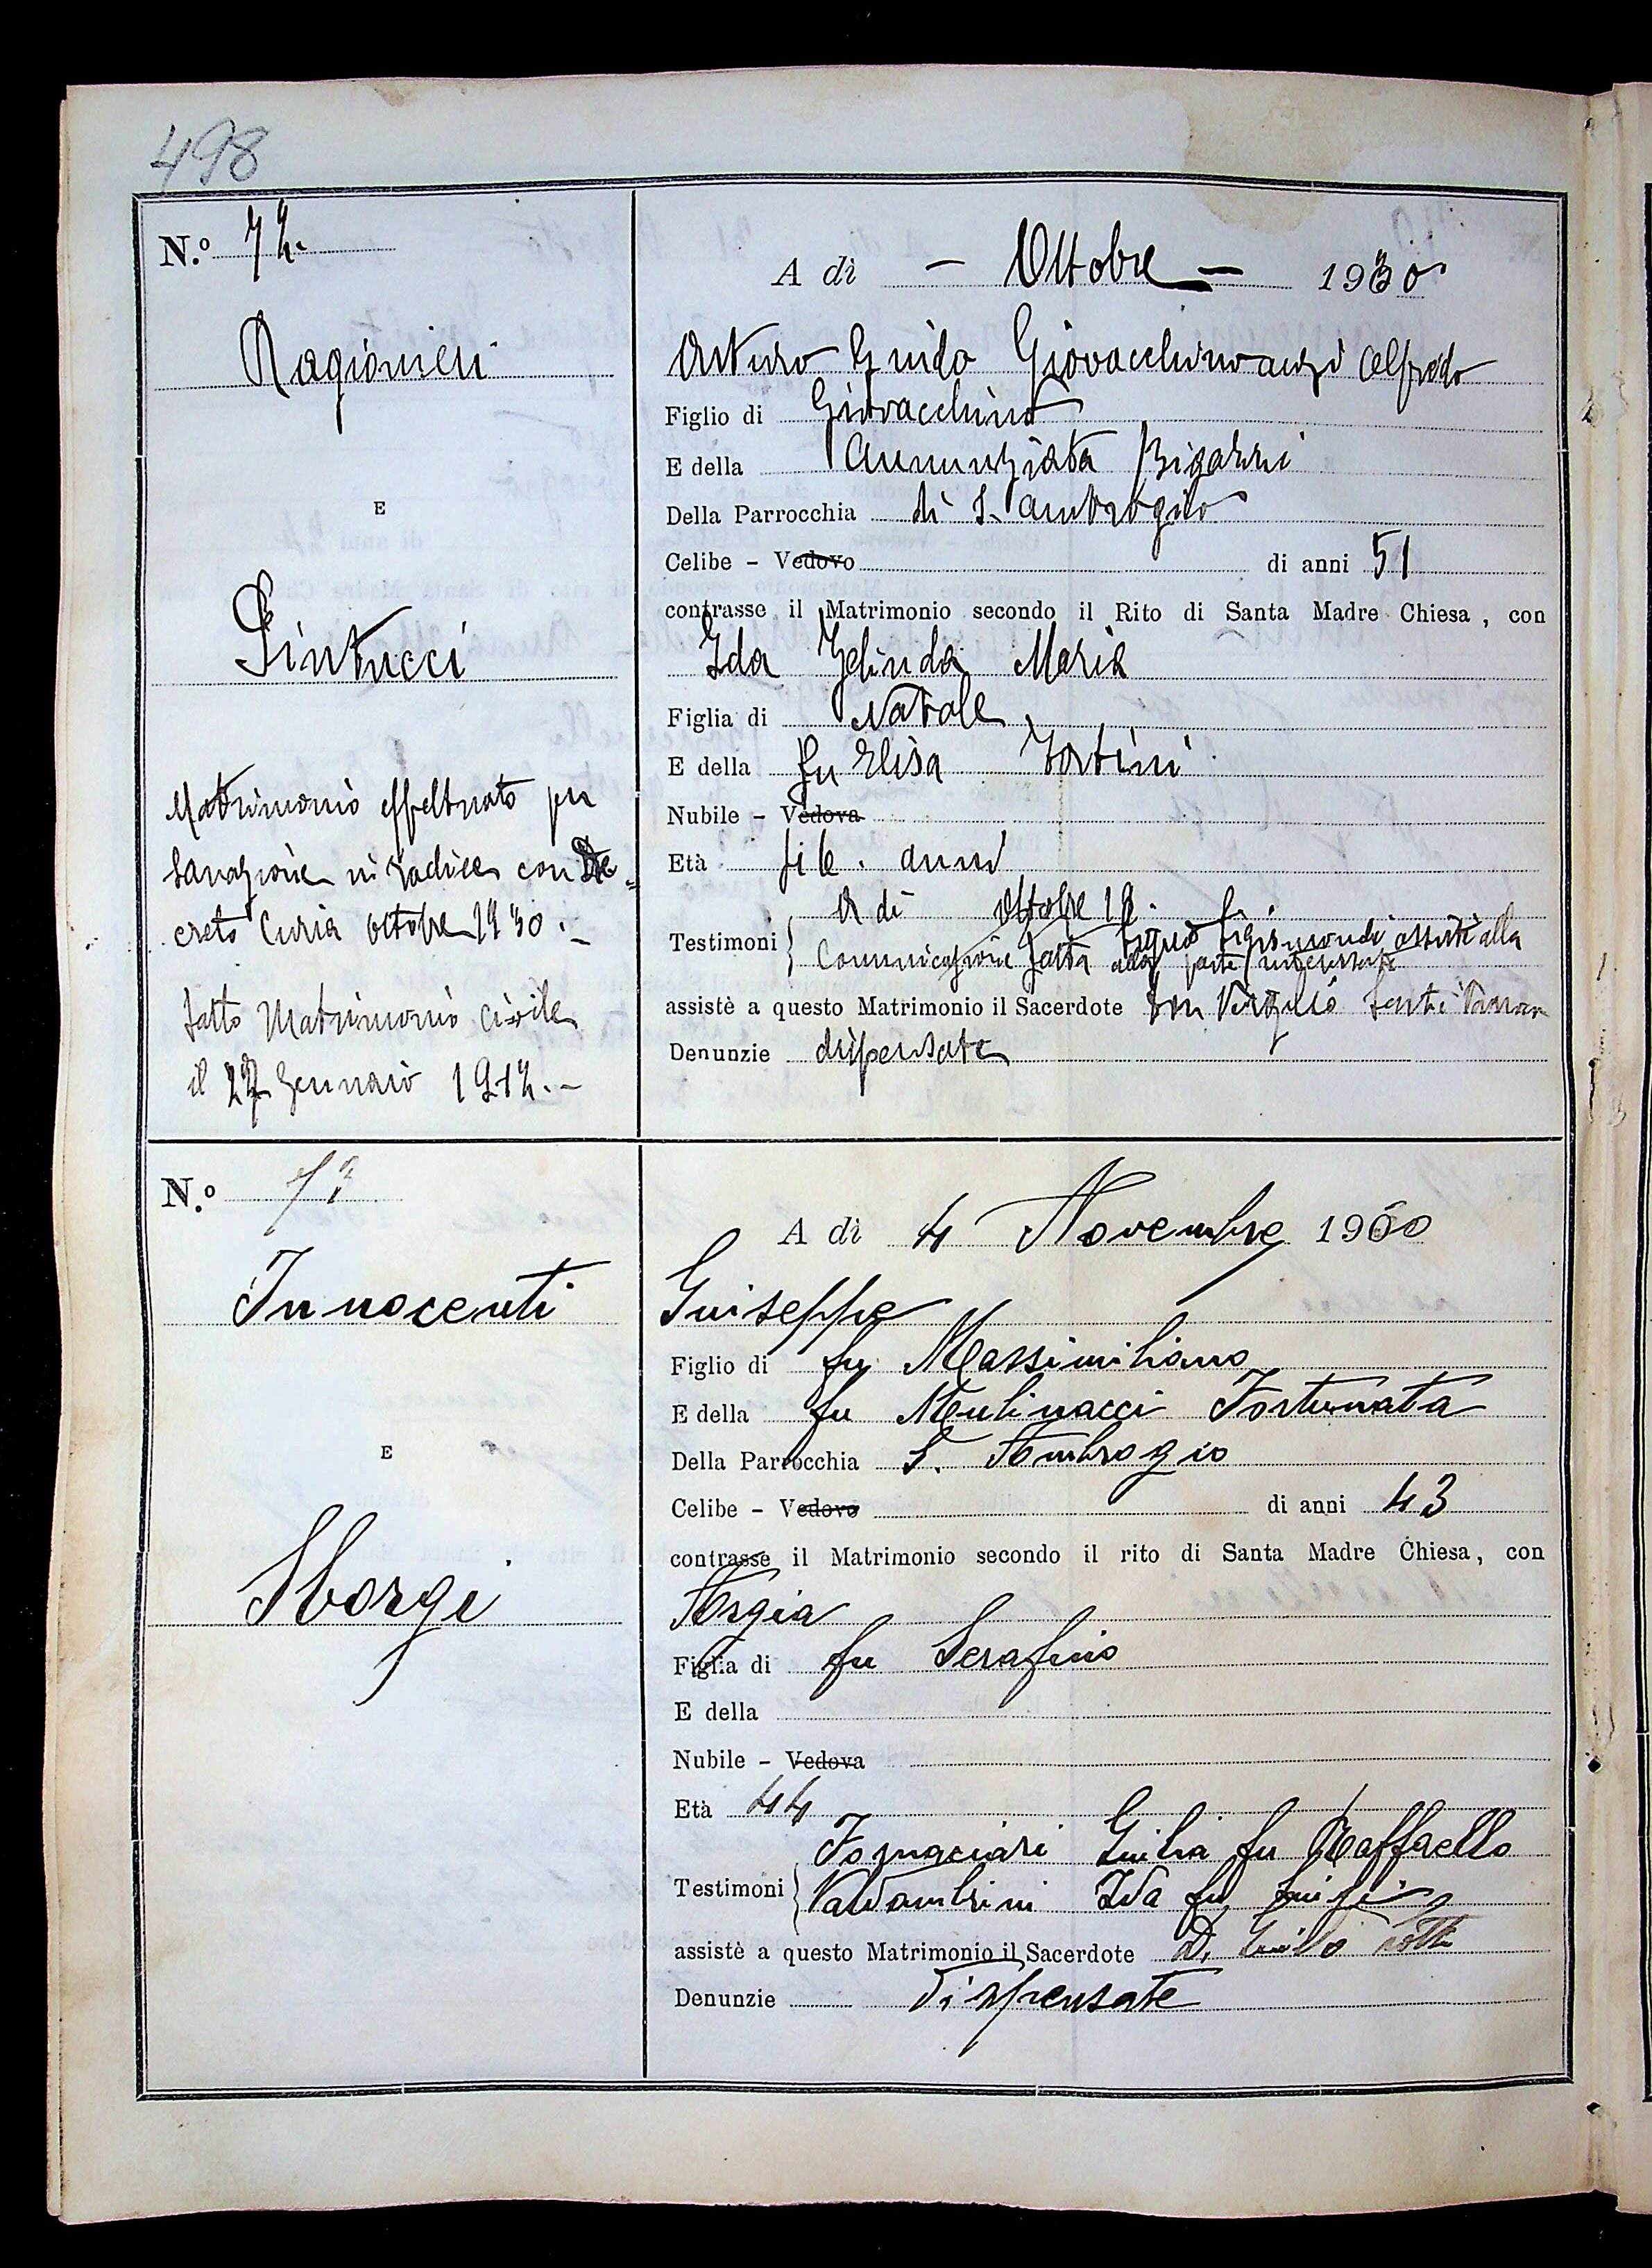 498
N.º 72.
Ragionieri
E
Pintucci
Matrimonio effettuato per
sanazione in radice con De=
creto Curia ottobre 1930.-
fatto Matrimonio civile
il 27 Gennaio 1912.-
A dì - Ottobre - 1930
Arturo Guido Giovacchino anzi Alfredo
Figlio di Giovacchino
E della Annunziata Bigazzi
Della Parrocchia di S. Ambrogio
Celibe - Vedovo di anni 51
contrasse il Matrimonio secondo il Rito di Santa Madre Chiesa, con
Ida Zelinda Maria
Figlia di Natale
E della fu Elisa Fortini
Nubile - Vedova
Età anni
A di Ottobre 19
Testimoni Comunicazione fatta alla parte interessata
assistè alla
assistè a questo Matrimonio il Sacerdote Don Virgilio
Denunzie dispensate
N.º 73
Innocenti
E
Sborgi
A dì 4 Novembre 1930
Guiseppe
Figlio di fu Massimiliano
E della fu Mulinacci Fortunata
Della Parrocchia S. Ambrogio
Celibe - Vedovo di anni 43
contrasse il Matrimonio secondo il rito di Santa Madre Chiesa, con
Argia
Figlia di fu Serafino
E della
Nubile - Vedova
Età 44
Fornaciari Giulia fu Raffaello
Testimoni Valdambrini Ida fu Luigi
assistè a questo Matrimonio il Sacerdote D.
Denunzie Dispensate